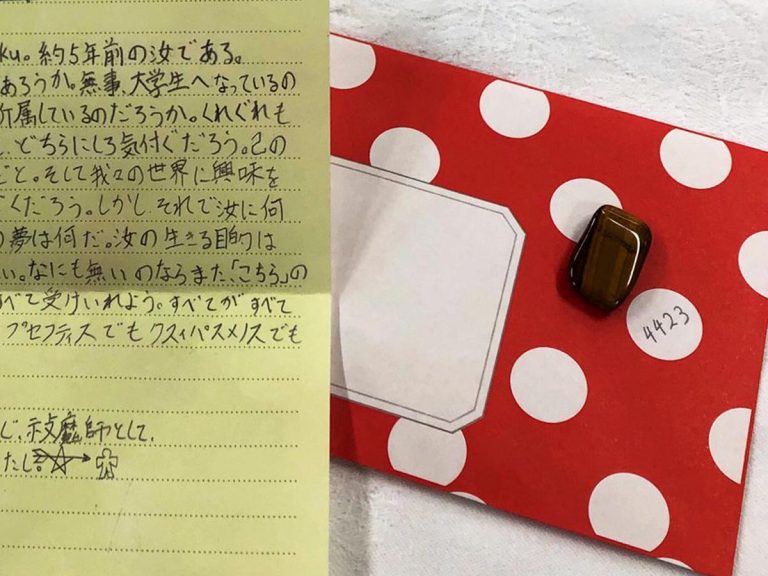 ku。約5年前の汝である。
あろうか。無事、大学生へなっているの
所属しているのだろうか。くれぐれも
、どちらにしろ気付くだろう。己の
ごと。そして我々の世界に興味を
くだろう。しかし、それで汝に何
の夢は何だ。汝の生きる目的は
い。なにも無いのならまた、「こちら」の
べて受けいれよう。すべてがすべて
プセフティスでもクスィパスメノスでも
じ、祓魔師として、
たし。
4423